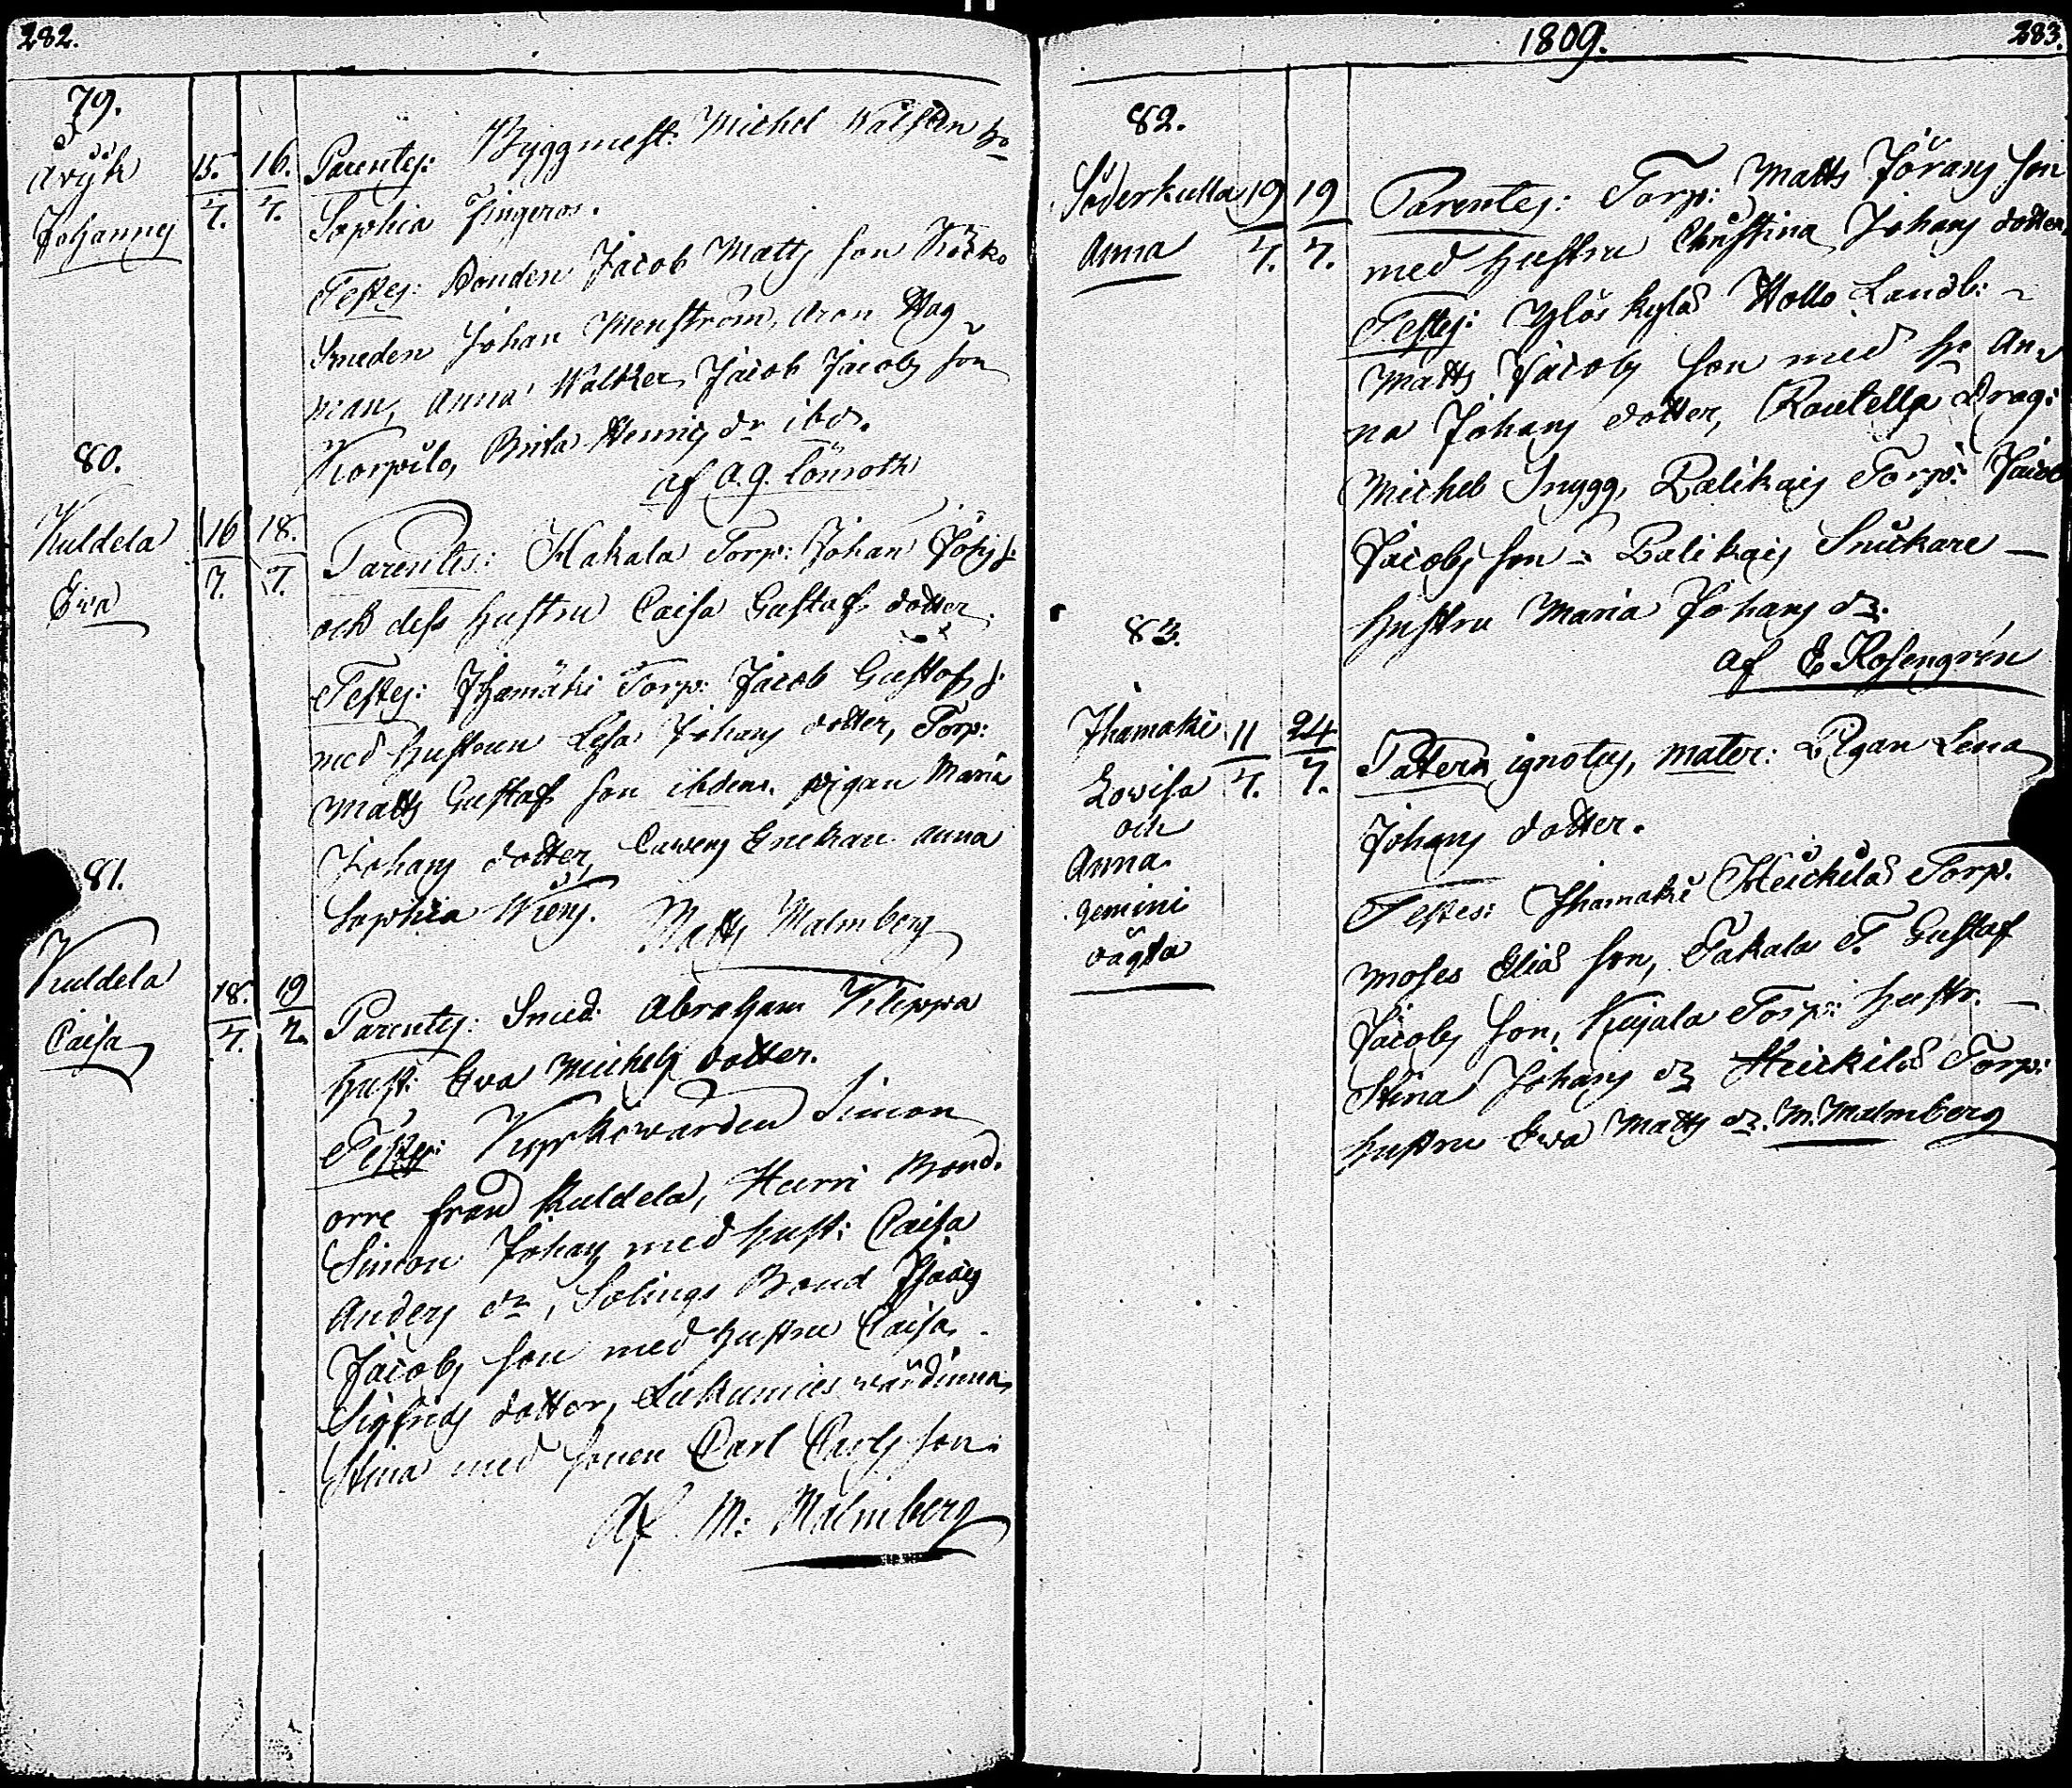 282.
79.
Åvÿk
Johannes
15.
7.
16.
7.
Parentes: Byggmest: Michel Walsten ho
Sophia Fingeroos.
Testes: Bonden Jacob Matts son
Smeden Johan Menström, Aron Hag-
man, Anna Walker, Jacob Jacobs son
Korpilo, Brita Henrics dr ibd.
af A. G. Lönroth
80.
Kuldela
Eva
16
7.
18.
7.
Parentes: Hakala Torp: Johan Johs s:
och dess hustru Caisa Gustafs dotter.
Testes: Ihamäki Torp: Jacob Gustafs s:
med hustrun Lisa Johans dotter, Torp:
Matts Gustafs son ibdem. pigan Maria
Johans dotter, Enckan Anna
Sophia
Matts Malmberg
81.
Kuldela
Caisa
18.
7.
19
7.
Parentes: Smed: Abraham Kileppa
hust: Eva Michels dotter.
Testes: Simon
orre från Kuldela, Hurri Bond.
Simon Johans med hust: Caisa
Anders dr, Salings Bond
Jacobs son med hustru Caisa
Sigfrids dotter, wärdinna,
Stina med sonen Carl Carls son.
Af M: Malmberg
1809.
283.
82.
Söderkulla
Anna
19
7.
19
7.
Parentes: Torp: Matts Jörans son
med hustru Christina Johans dotter,
Testes: Yløskylä Hollo Landb:
Matts Jacobs son med ho An-
na Johans dotter, Drag:
Michel Snygg, Palikais Torp: Jacob
Jacobs son - Palikais Snickare —
hustru Maria Johans dr.
af E Rosengrén
83.
Ihamäki
Lovisa
och
Anna
gemini
oägta
11
7.
24
7.
Pater ignotus, mater: Pigan Lena
Johans dotter.
Testes: Ihamäki Heickilä Torp.
Moses Elias son, Takala T. Gustaf
Jacobs son, Kujala Torp: hustr. —
Stina Johans dr Heickilä Torp:
hustru Ewa Matts dr. M. Malmberg